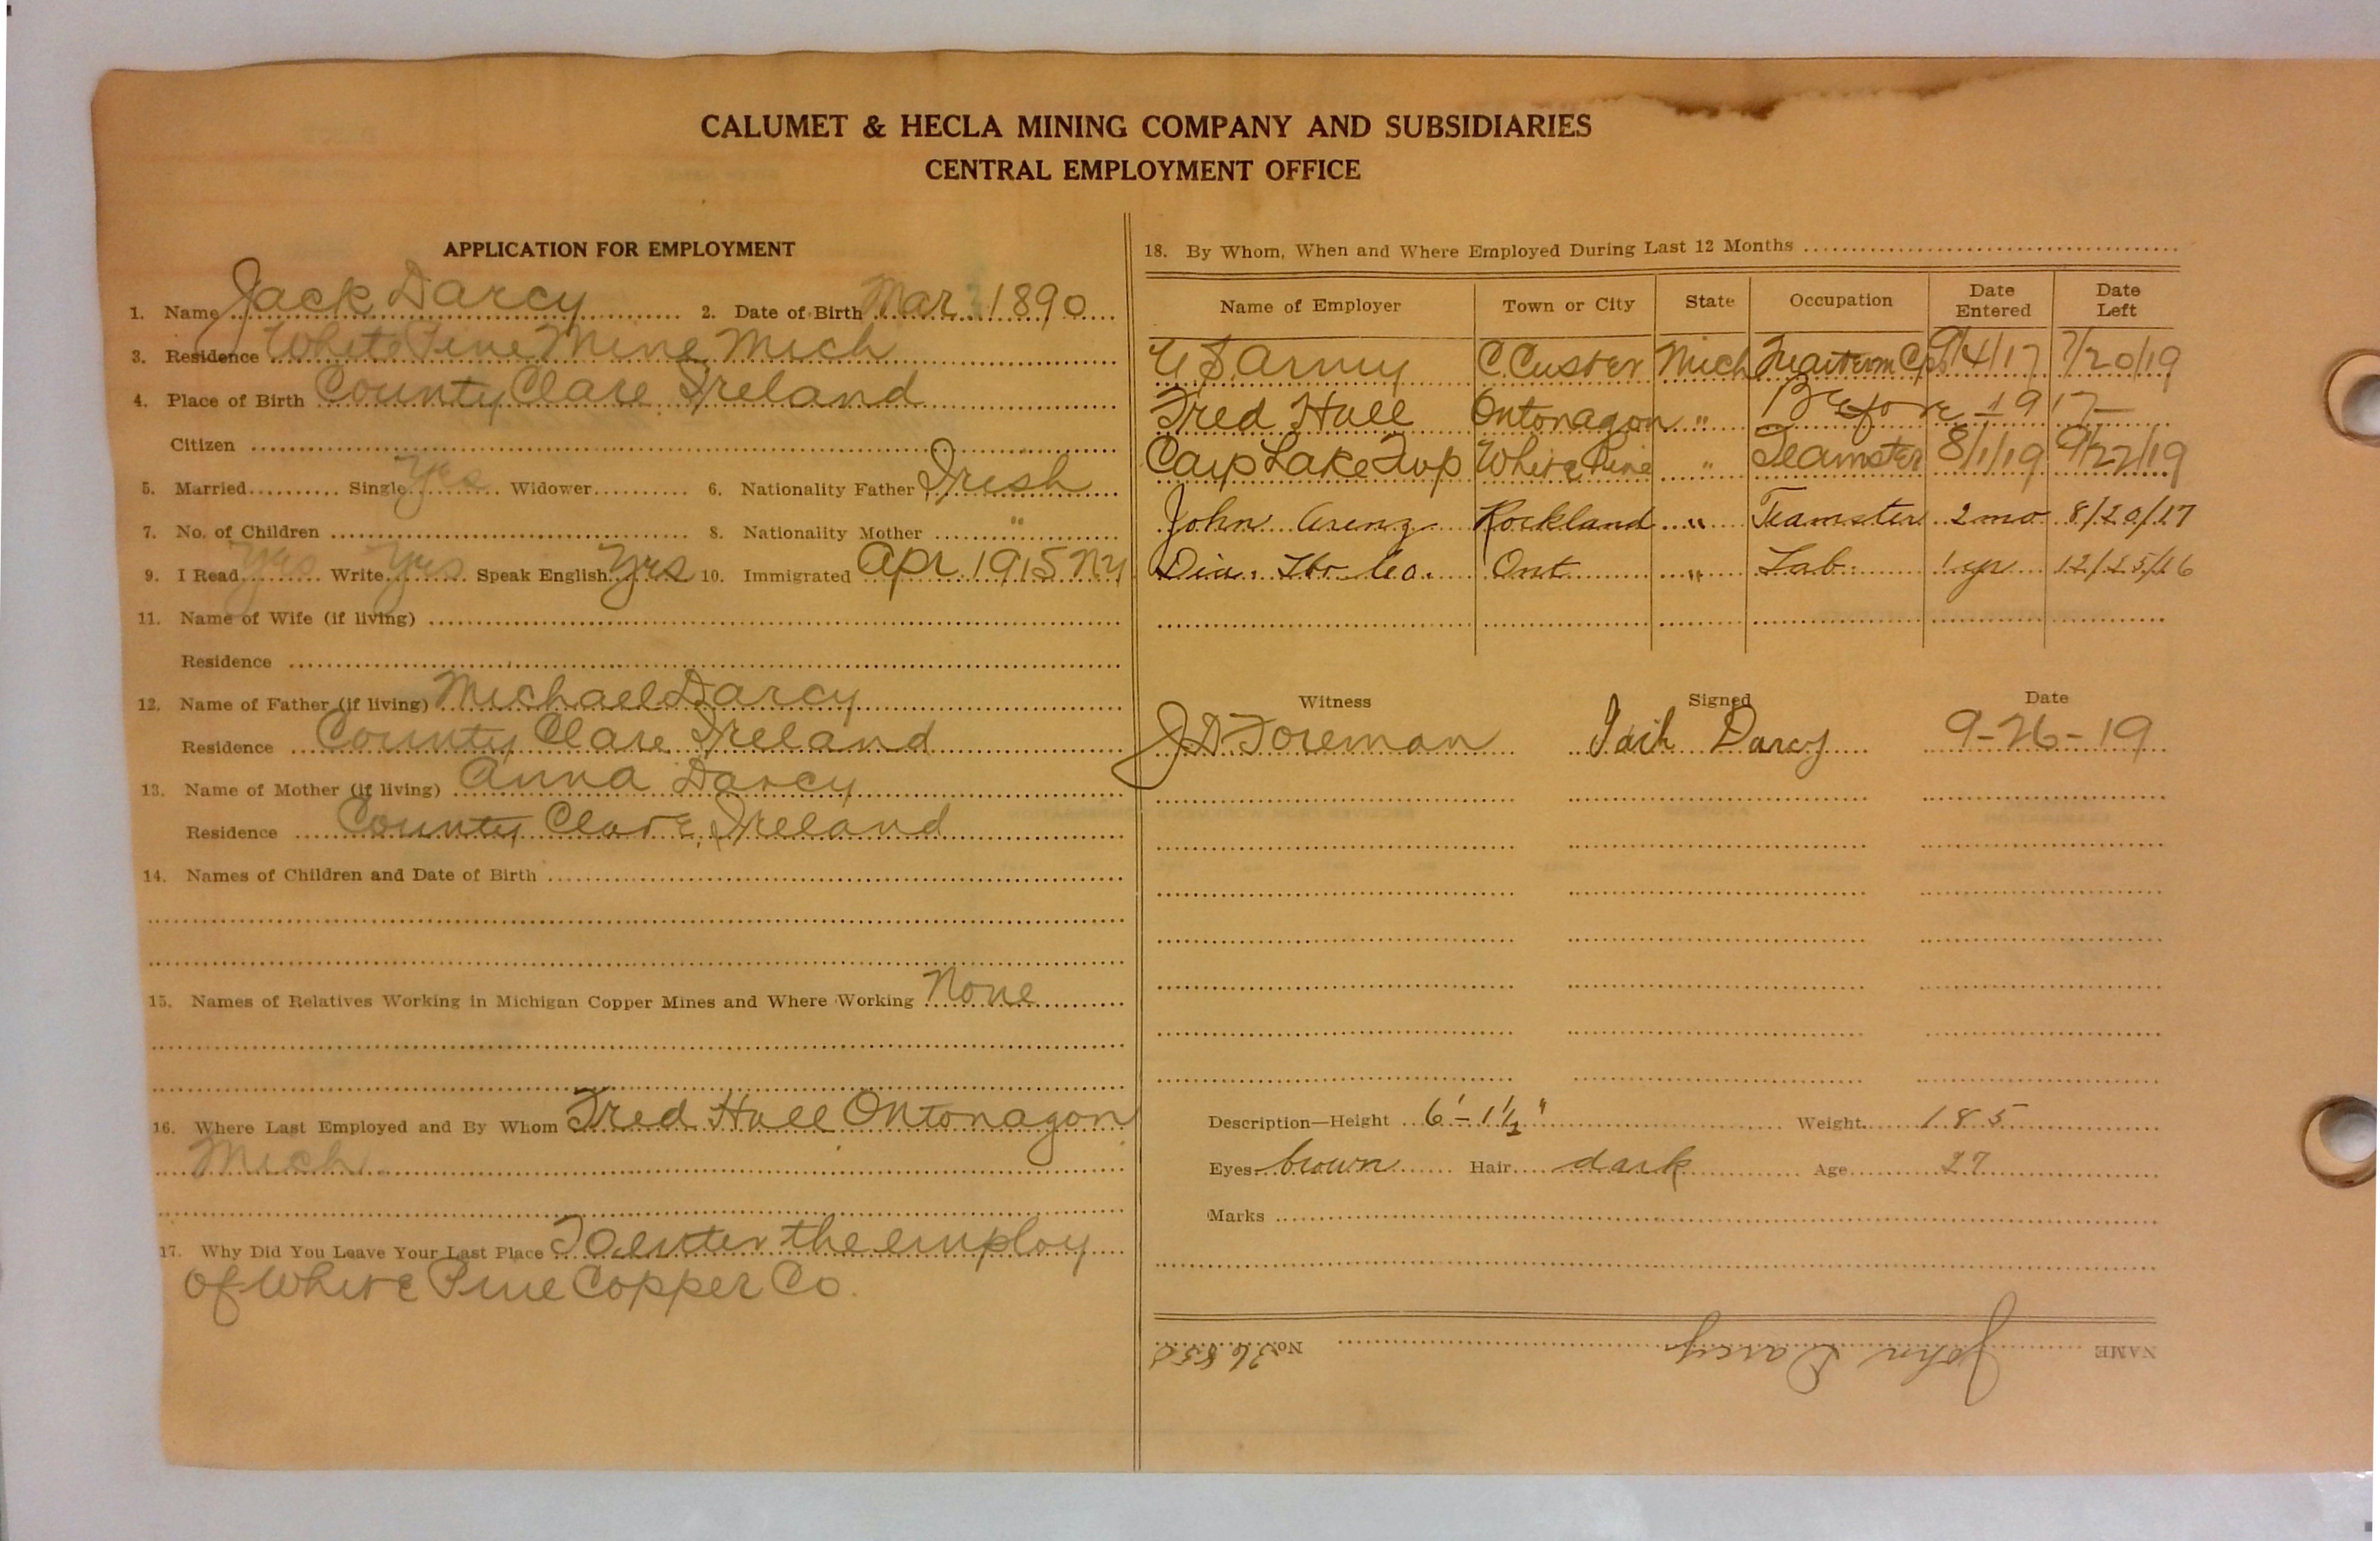 CALUMET & HECLA MINING COMPANY AND SUBSIDIARIES
CENTRAL EMPLOYMENT OFFICE
APPLICATION FOR EMPLOYMENT
1. Name Jack Darcy 2. Date of Birth Mar 1890
3. Residence White Pine Mine Mich
4. Place of Birth County Clare Ireland
Citizen
5. Married Single Yes Widower 6. Nationality Father Irish
7. No. of Children 8. Nationality Mother "
9. I Read Yes Write Yes Speak English Yes 10. Immigrated Apr 1915 NY
11. Name of Wife (if living)
Residence
12. Name of Father (if living) Michael Darcy
Residence County Clare Ireland
13. Name of Mother (if living) Anna Darcy
Residence County Clare, Ireland
14. Names of Children and Date of Birth
15. Names of Relatives Working in Michigan Copper Mines and Where Working None
16. Where Last Employed and By Whom Fred Hull Ontonagon
Mich
17. Why Did You Leave Your Last Place To enter the employ
of White Pine Copper Co.
18. By Whom, When and Where Employed During Last 12 Months
Name of Employer Town or City State Occupation Date Entered Date Left
U.S. Army C. Custer Mich 9/4/17 7/20/19
Fred Hull Ontonagon " Before 1917
Carp Lake Twp White Pine " Teamster 8/1/19 9/22/19
John Rockland " Teamster 2 mo 8/20/17
Ont " Lab. 1 yr 12/25/16
Witness Signed Date
J D Foreman Jack Darcy 9-26-19
Description—Height 6'-1½" Weight 185
Eyes brown Hair dark Age 27
Marks
NAME John Darcy No.